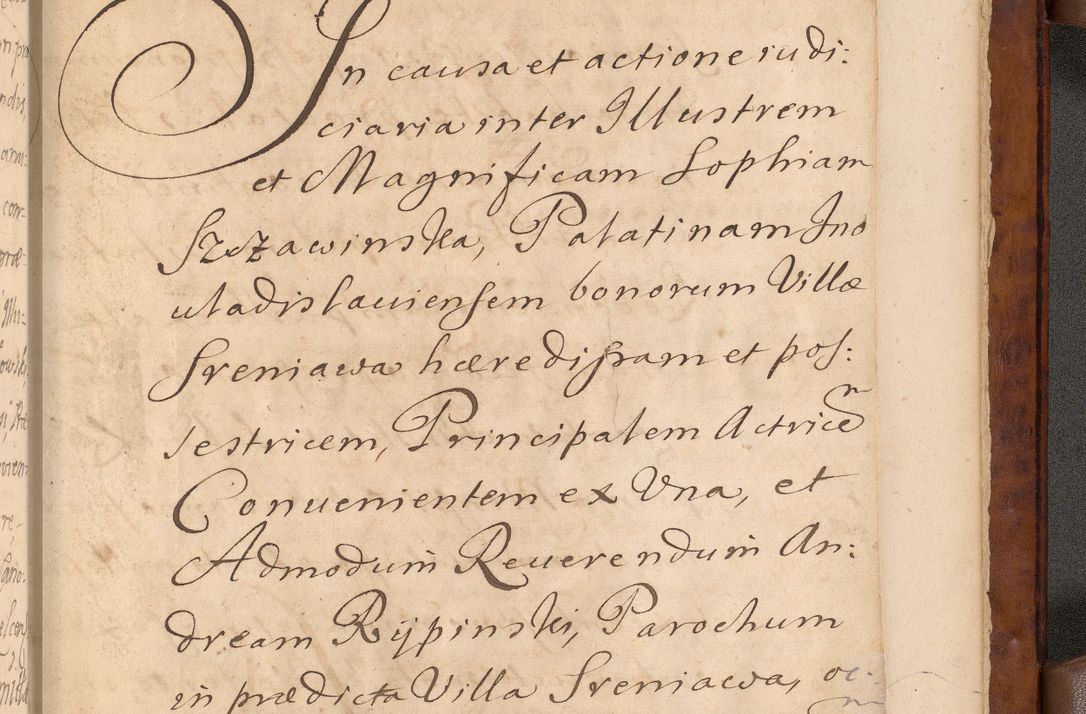 In causa et actione iudi:
ciaria inter Illustrem
et Magnificam Sophiam
Szczawinska, Palatinam Ino
uladislauiensem bonorum Villæ
Sreniawa hæredissam et pos:
sestricem, Principalem Actricem
Conuenientem ex Vna, et
Admodum Reuerendum An:
dream Rÿpinski, Parochum
in prædicta Villa Sreniawa, oc: